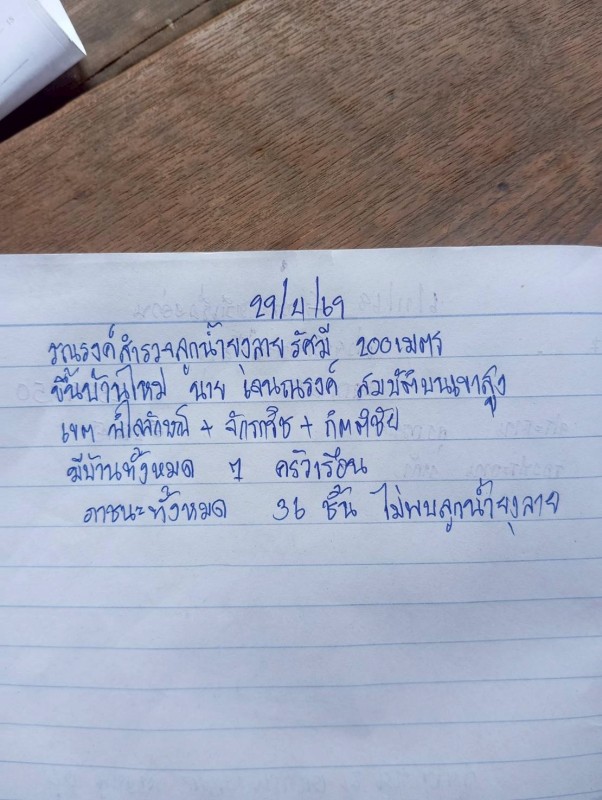 29/4/69
รณรงค์สำรวจลูกน้ำยุงลาย รัศมี 200เมตร
ขึ้นบ้านใหม่ นาย เจนณรงค์ สมบัติบนเขาสูง
เขต พิไลลักษณ์ + จักรกริช + กิตติชัย
มีบ้านทั้งหมด 7 ครัวเรือน
ภาชนะทั้งหมด 36 ชิ้น ไม่พบลูกน้ำยุงลาย